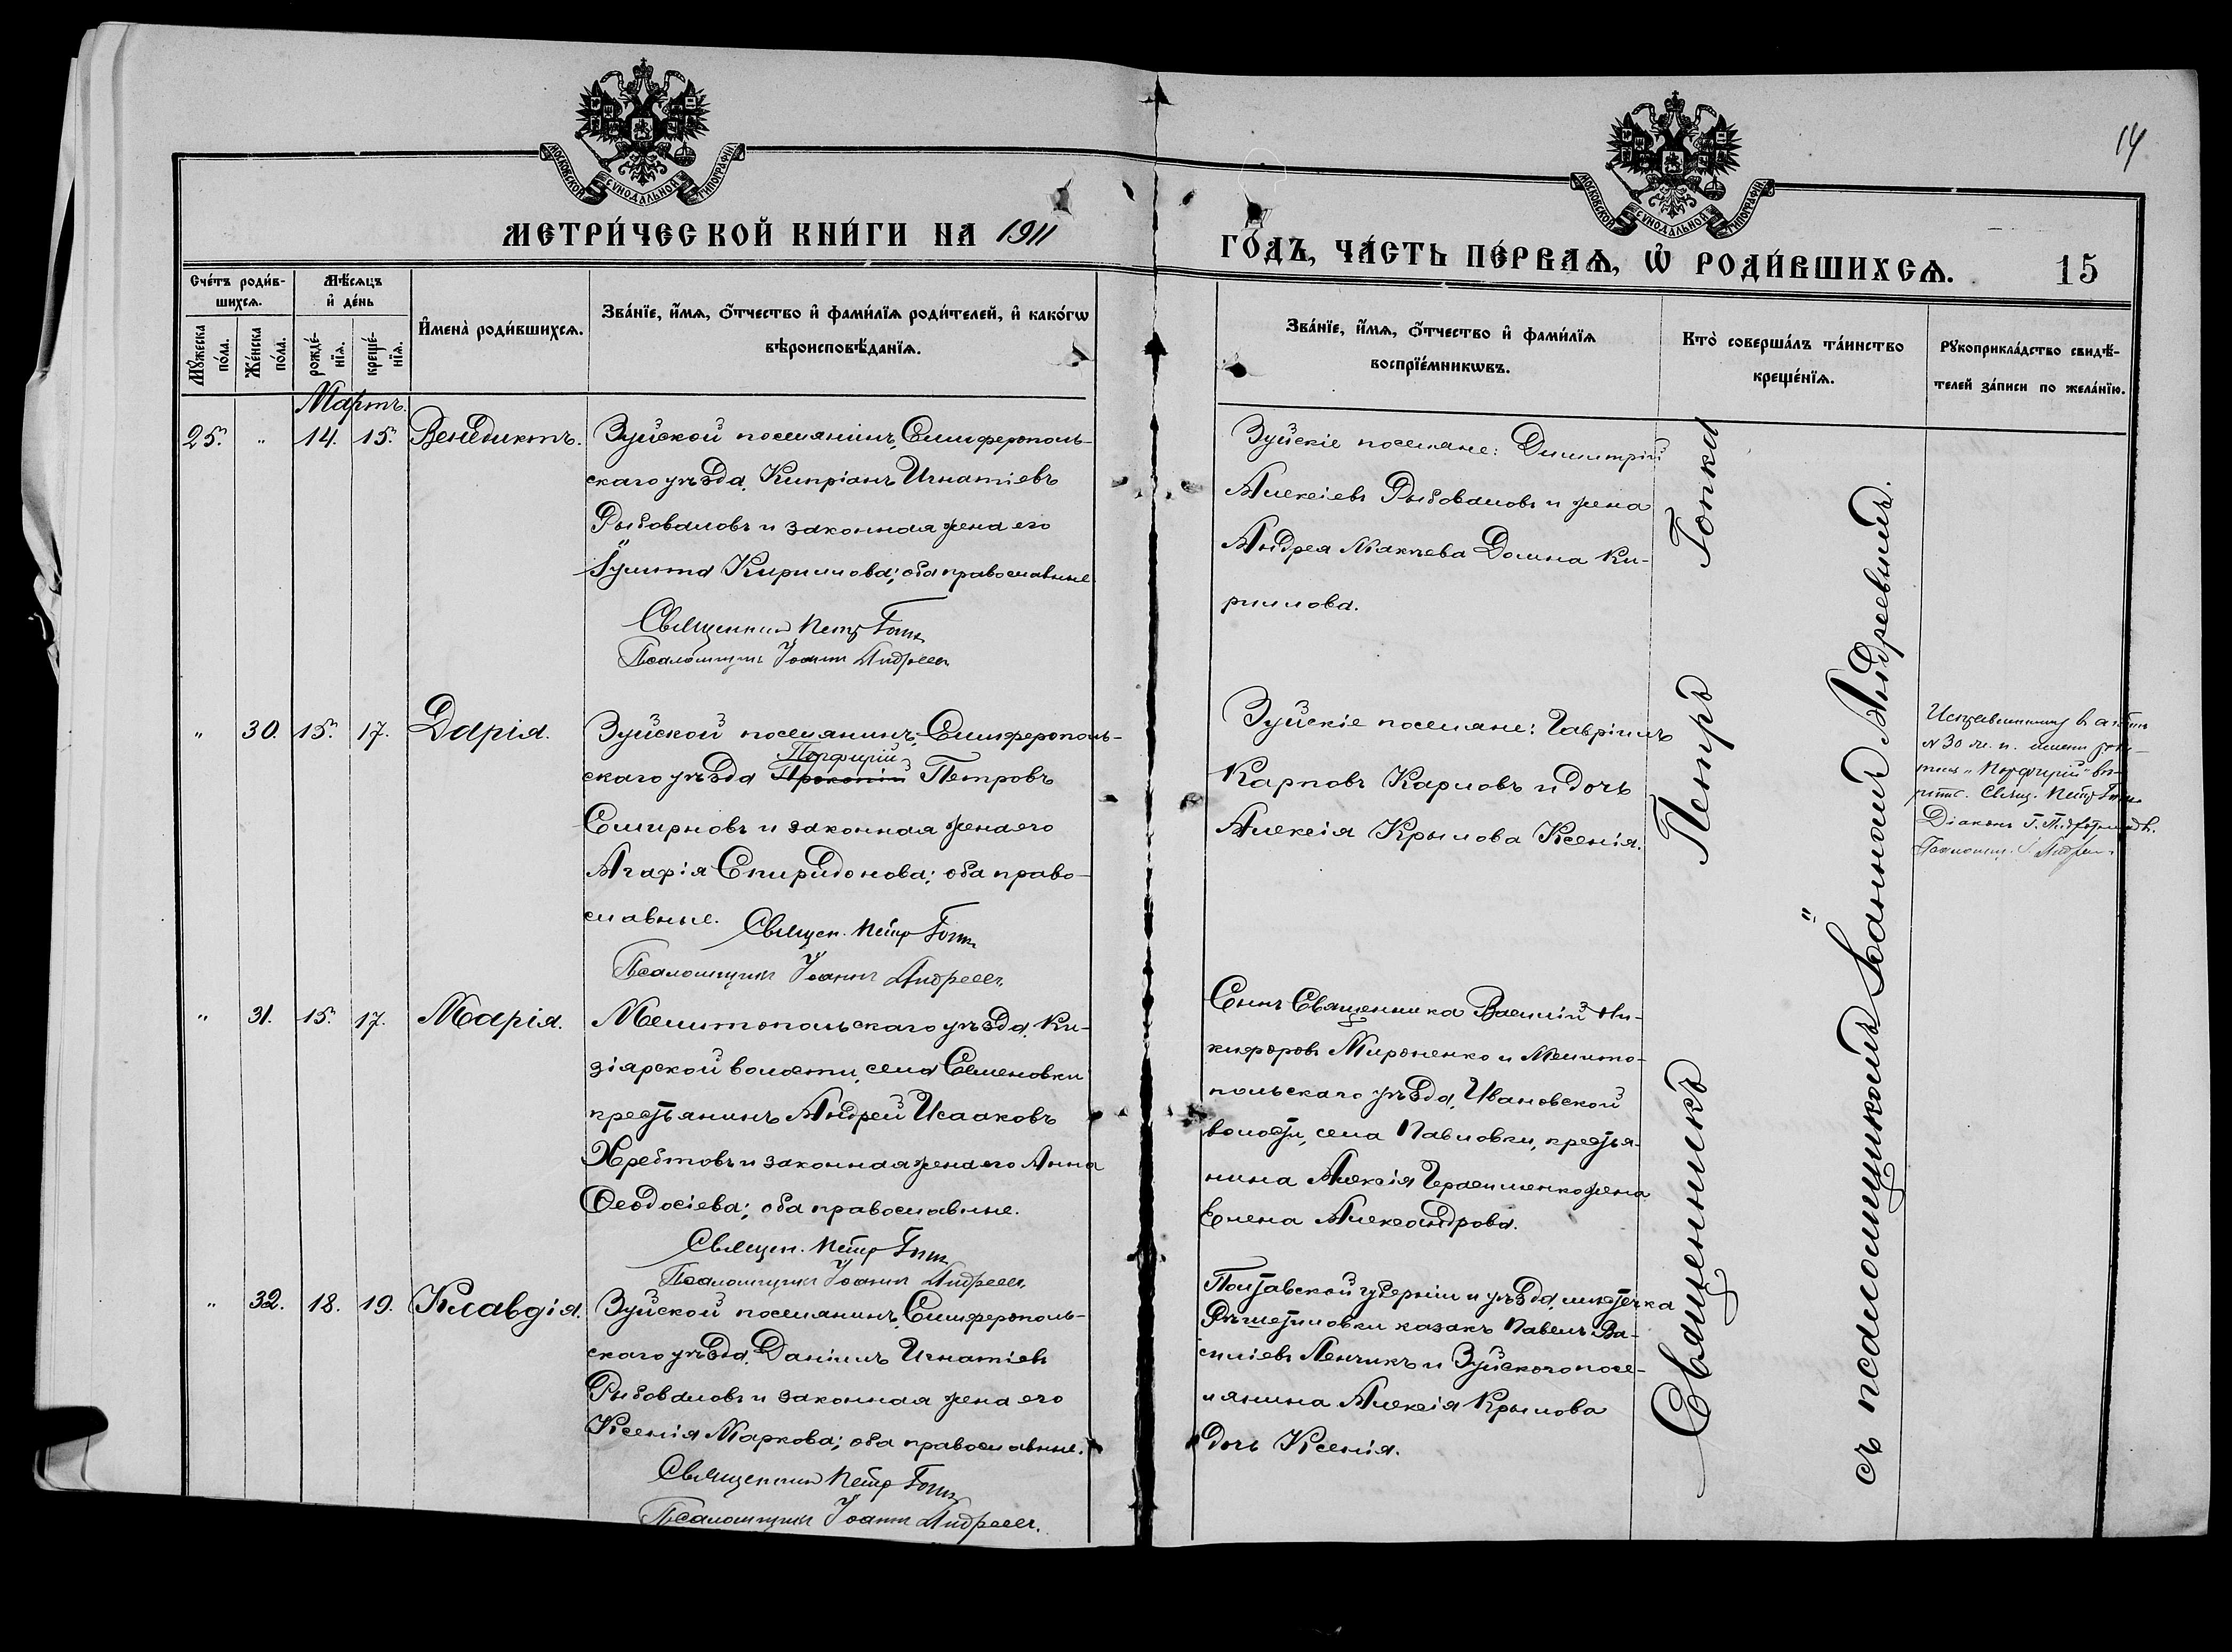 14
МОСКОВСКОЙ СѴНОДАЛЬНОЙ ТИПОГРАФІИ
МОСКОВСКОЙ СѴНОДАЛЬНОЙ ТИПОГРАФІИ
МЕТРИ́ЧЕСКОЙ КНИ́ГИ НА 1911
ГО́ДЪ, ЧА́СТЬ ПЕ́РВАѦ, Ѡ҆ РОДИ́ВШИХСѦ. 15
Сче́тъ роди́в-
шихсѧ.
Мꙋ́жеска по́ла.
Же́нска по́ла.
Мѣ́сѧцъ
и҆ де́нь
рожде́-
нїѧ.
креще́-
нїѧ.
И҆мена̀ роди́вшихсѧ.
Зва́нїе, и҆́мѧ, ѻ҆́тчество и҆ фами́лїѧ роди́телей, и҆ како́гѡ
вѣроисповѣ́данїѧ.
Зва́нїе, и҆́мѧ, ѻ҆́тчество и҆ фами́лїѧ
воспрїе́мникѡвъ.
Кто̀ соверша́лъ та́инство
креще́нїѧ.
Рꙋкоприкла́дство свидѣ́-
телей за́писи по жела́нїю.
Мартъ.
25. " 14. 15. Венедиктъ.
Зуйской поселянинъ, Симферополь-
скаго уѣзда, Кипріанъ Игнатіевъ
Рыбоваловъ и законная жена его
Іулита Кирилова; оба православные
Священникъ Петр Гопка
Псаломщикъ Іоаннъ Андреев
Зуйскіе поселяне: Димитрій
Алексіевъ Рыбоваловъ и жена
Андрея Домна Ки-
рилова.
" 30. 15. 17. Дарія.
Зуйской поселянинъ, Симферополь-
Порфирій
скаго уѣзда Прокопій Петровъ
Смирновъ и законная жена его
Агафія Спиридонова; оба право-
славные. Священ. Петр Гопка
Псаломщикъ Іоаннъ Андреев
Зуйскіе поселяне: Гавріилъ
Карповъ Карловъ и дочь
Алексія Крылова Ксенія.
№ 30 ж. п.
"Порфирій"
Свящ. Петр Гопка
Діаконъ
Псаломщ. І. Андреев
" 31. 15. 17. Марія.
Мелитопольскаго уѣзда, Ки-
зіярской волости, села Семеновки
крестьянинъ Андрей Исааковъ
Хребтовъ и законная жена его Анна
Ѳеодосіева; оба православные.
Священ. Петр Гопка
Псаломщикъ Іоаннъ Андреев
Сынъ Священника Василій Ни-
кифоровъ Мироненко и Мелито-
польскаго уѣзда, Ивановской
волости, села Павловки, крестья-
нина Алексія Герасименко жена
Елена Александрова.
" 32. 18. 19. Клавдія.
Зуйской поселянинъ, Симферополь-
скаго уѣзда, Даніилъ Игнатіевъ
Рыбоваловъ и законная жена его
Ксенія Маркова; оба православные.
Священникъ Петр Гопка
Псаломщикъ Іоаннъ Андреев
Полтавской губерніи и уѣзда, мѣстечка
Рѣшетиловки казакъ Павелъ Ва-
силіевъ Ленчикъ и Зуйского посе-
лянина Алексія Крылова
дочь Ксенія.
Священникъ Петръ Гопка
съ псаломщикомъ Іоанномъ Андреевымъ.